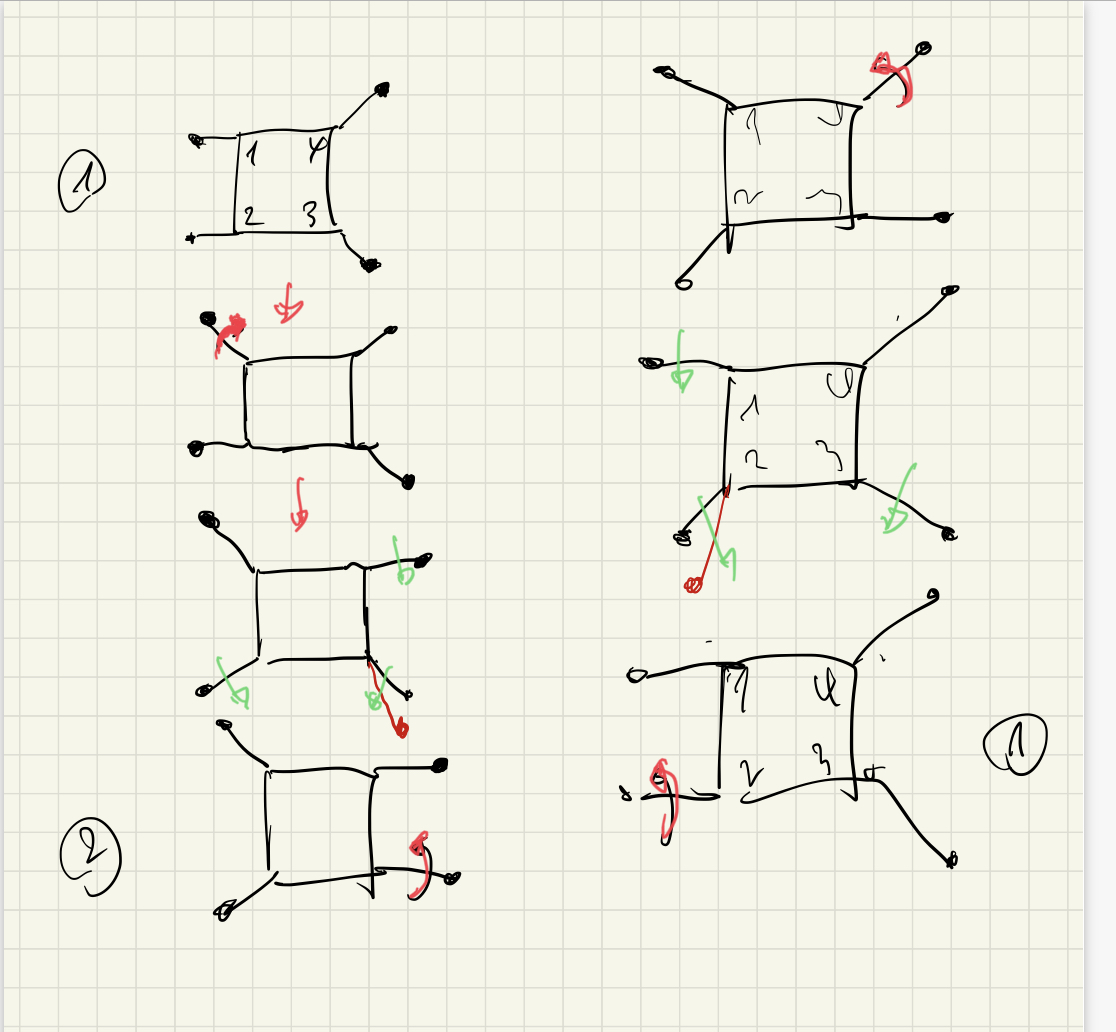 1
1 4
2 3
2
1 4
2 3
1 4
2 3
1 4
2 3
1